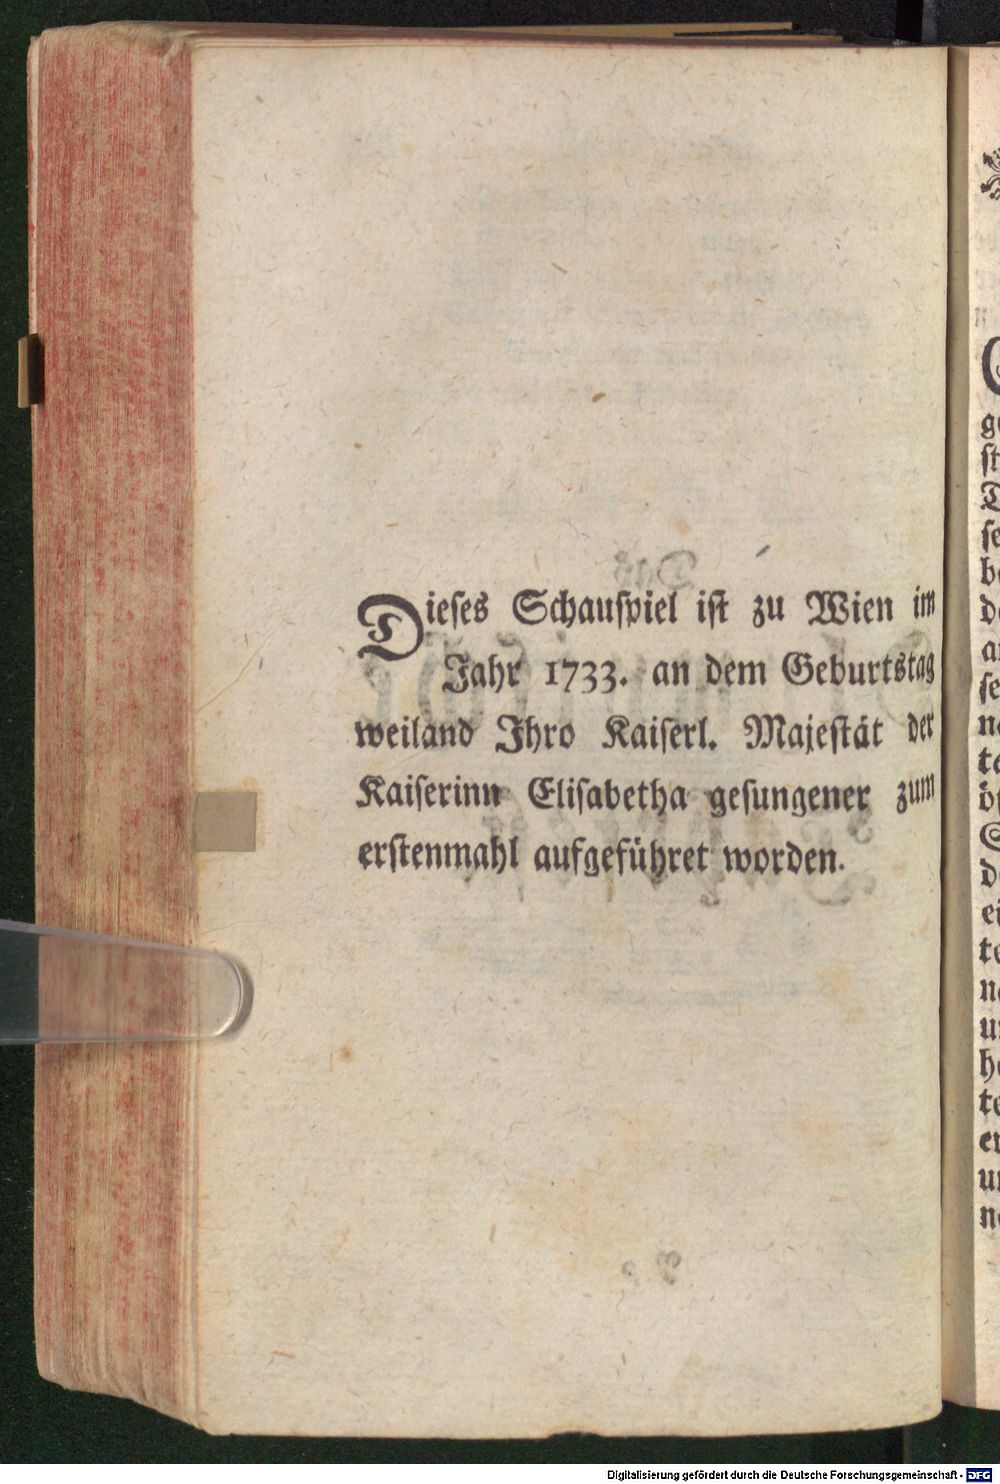 Dieses Schauspiel ist zu Wien im
Jahr 1733. an dem Geburtstag
weiland Ihro Kaiserl. Majestät der
Kaiserinn Elisabetha gesungener zum
erstenmahl aufgeführet worden.
Digitalisierung gefördert durch die Deutsche Forschungsgemeinschaft - DFG